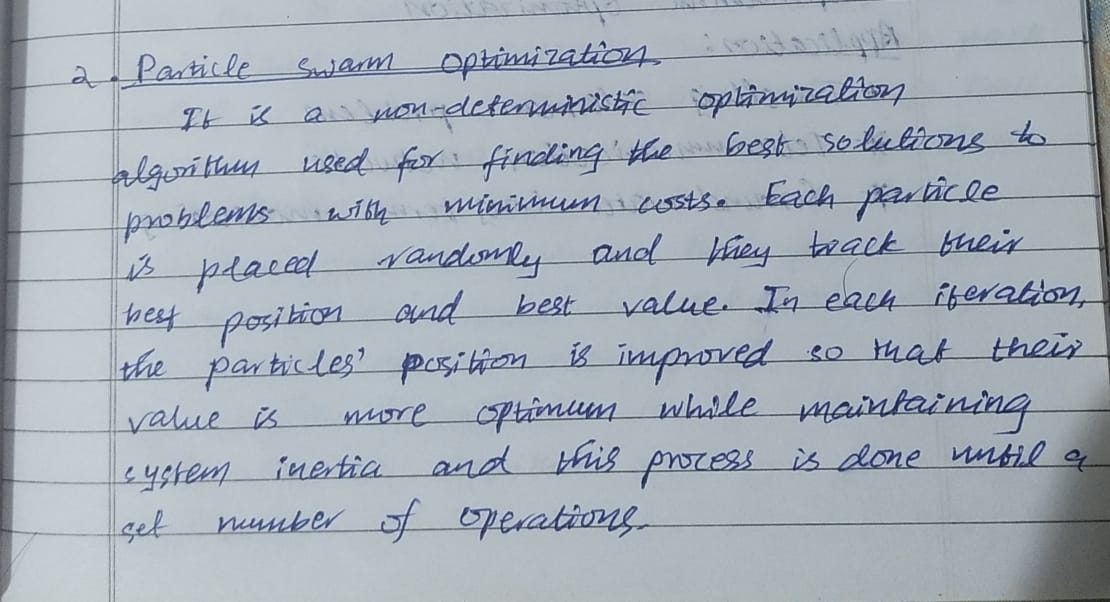 2. Particle swarm optimization
It is a non-deterministic optimization
algorithm used for finding the best solutions to
problems with minimum costs. Each particle
is placed randomly and they track their
best position and best value. In each iteration,
the particles' position is improved so that their
value is more optimum while maintaining
system inertia and this process is done until a
set number of operations.